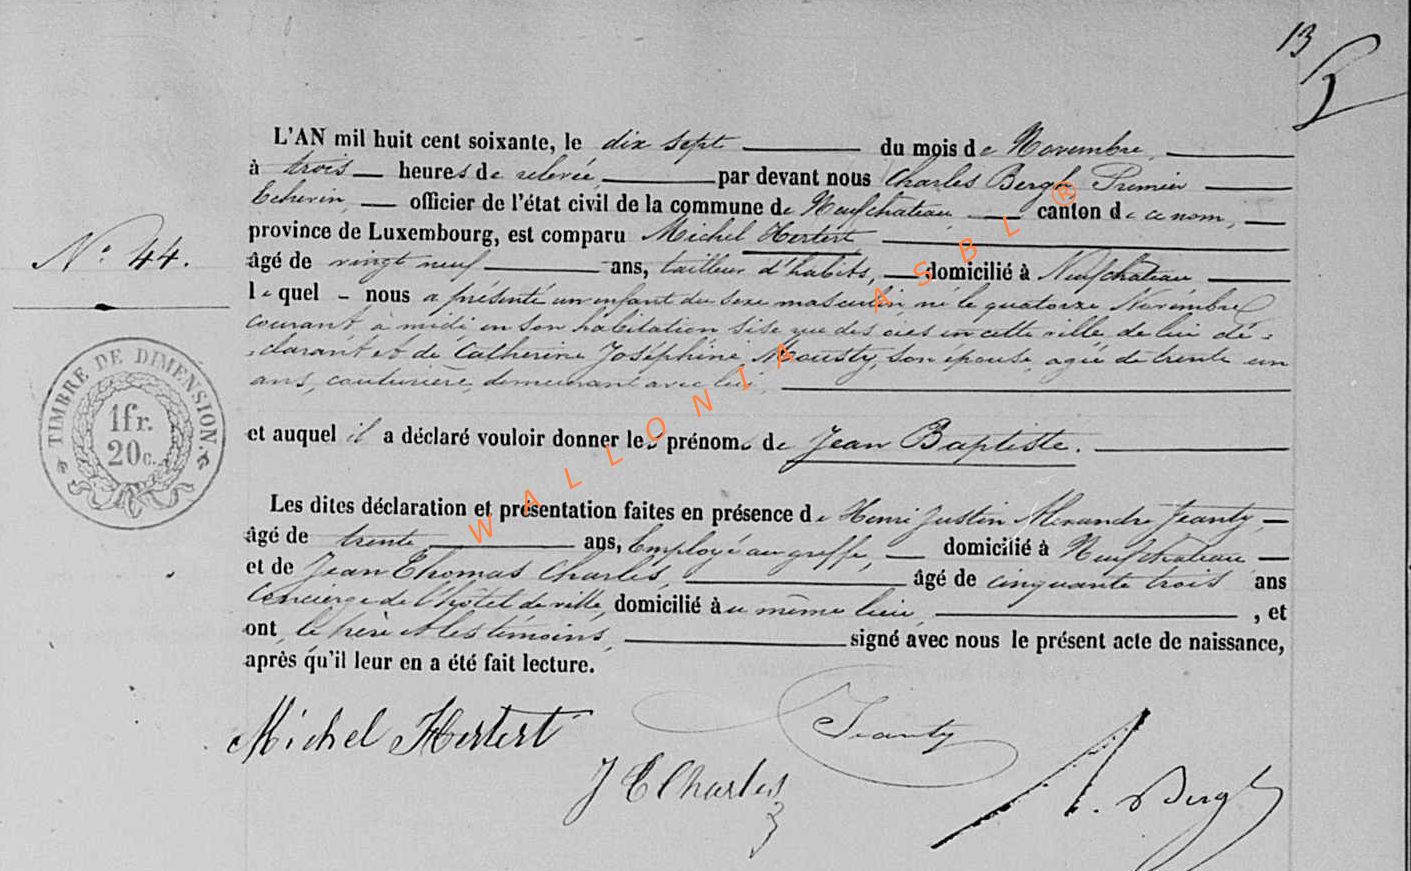 13
L'AN mil huit cent soixante, le dix sept du mois de Novembre,
à trois heures de relevée, par devant nous Charles Bergh Premier
Echevin, officier de l'état civil de la commune de Neufchateau canton de ce nom,
province de Luxembourg, est comparu Michel Hertert
N° 44.
âgé de vingt neuf ans, tailleur d'habits, domicilié à Neufchateau
lequel nous a présenté un enfant du sexe masculin, né le quatorze Novembre
courant, à midi en son habitation sise rue des oies en cette ville, de lui dé=
=clarant et de Catherine Joséphine Mousty, son épouse, agée de trente un
ans, couturière, demeurant avec lui,
et auquel il a déclaré vouloir donner les prénoms de Jean Baptiste.
TIMBRE DE DIMENSION.
1fr.
20c.
Les dites déclaration et présentation faites en présence de Henri Justin Alexandre Jeanty,
âgé de trente ans, Employé au greffe, domicilié à Neufchateau
et de Jean Thomas Charles, âgé de cinquante trois ans
Concierge de l'hôtel de ville, domicilié au même lieu, , et
ont le père et les témoins, signé avec nous le présent acte de naissance,
après qu'il leur en a été fait lecture.
Michel Hertert
Jeanty
J T Charles
Bergh
WALLONIA ASBL ®